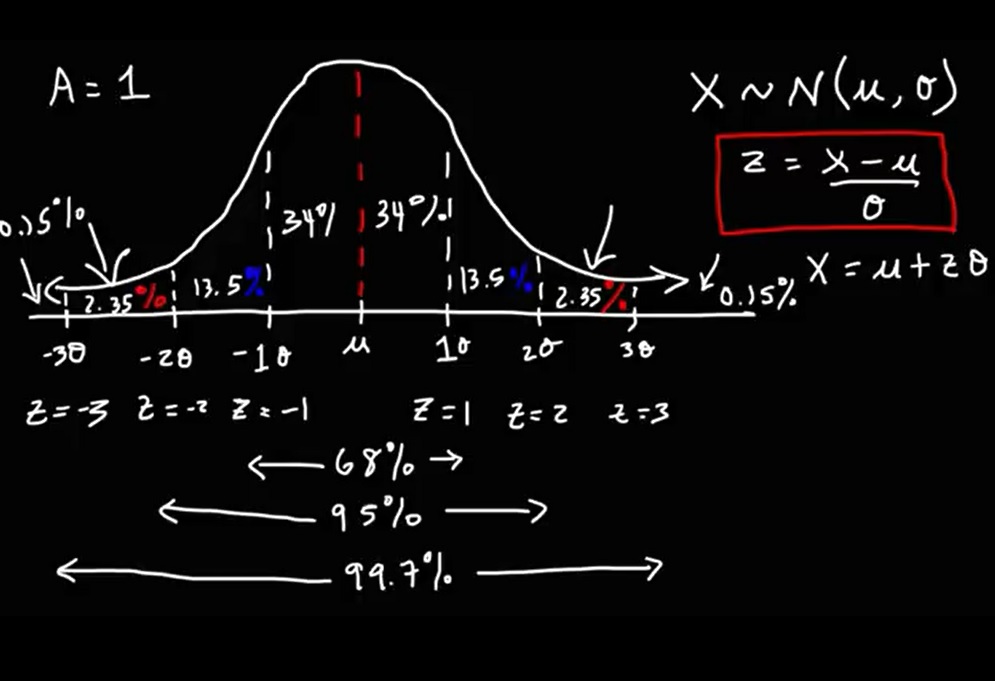 A = 1
X ~ N(μ, σ)
z = x - μ / σ
X = μ + zσ
0.15%
34% 34%
13.5% 13.5%
2.35% 2.35%
0.15%
-3σ -2σ -1σ μ 1σ 2σ 3σ
z = -3 z = -2 z = -1 z = 1 z = 2 z = 3
68%
95%
99.7%